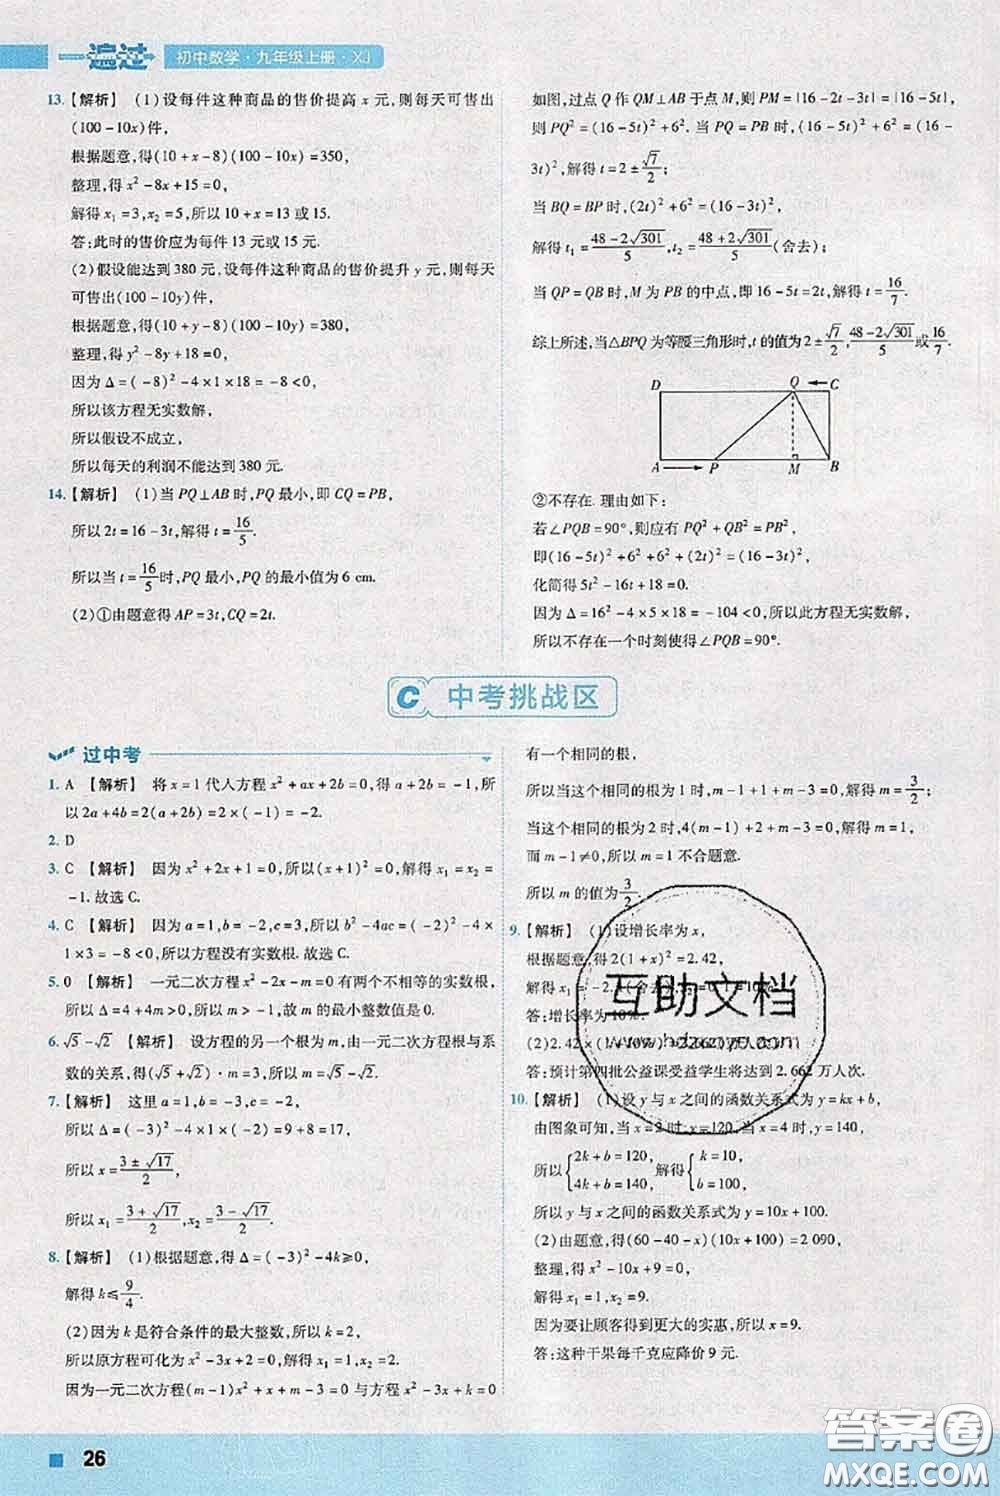 一遍过 初中数学·九年级上册·XJ
13.【解析】 (1)设每件这种商品的售价提高 x 元,则每天可售出
(100-10x)件,
根据题意,得(10+x-8)(100-10x)=350,
整理,得 x²-8x+15=0,
解得 x₁=3,x₂=5,所以 10+x=13 或 15.
答:此时的售价应为每件 13 元或 15 元.
(2)假设能达到 380 元,设每件这种商品的售价提升 y 元,则每天
可售出(100-10y)件,
根据题意,得(10+y-8)(100-10y)=380,
整理,得 y²-8y+18=0,
因为 Δ=(-8)²-4×1×18=-8<0,
所以该方程无实数解,
所以假设不成立,
所以每天的利润不能达到 380 元.
14.【解析】 (1)当 PQ⊥AB 时,PQ 最小,即 CQ=PB,
所以 2t=16-3t,解得 t=16/5.
所以当 t=16/5时,PQ 最小,PQ 的最小值为 6 cm.
(2)①由题意得 AP=3t,CQ=2t.
如图,过点 Q 作 QM⊥AB 于点 M,则 PM=|16-2t-3t|=|16-5t|,
则 PQ²=(16-5t)²+6². 当 PQ=PB 时,(16-5t)²+6²=(16-
3t)²,解得 t=2±√7/2;
当 BQ=BP 时,(2t)²+6²=(16-3t)²,
解得 t₁=(48-2√301)/5,t₂=(48+2√301)/5(舍去);
当 QP=QB 时,M 为 PB 的中点,即 16-5t=2t,解得 t=16/7.
综上所述,当△BPQ 为等腰三角形时,t 的值为 2±√7/2,(48-2√301)/5或16/7.
D Q C
A P M B
②不存在. 理由如下:
若∠PQB=90°,则应有 PQ²+QB²=PB²,
即(16-5t)²+6²+6²+(2t)²=(16-3t)²,
化简得 5t²-16t+18=0.
因为 Δ=16²-4×5×18=-104<0,所以此方程无实数解,
所以不存在一个时刻使得∠PQB=90°.
C 中考挑战区
过中考
1. A 【解析】 将 x=1 代入方程 x²+ax+2b=0,得 a+2b=-1,所
以 2a+4b=2(a+2b)=2×(-1)=-2.
2. D
3. C 【解析】 因为 x²+2x+1=0,所以(x+1)²=0,解得 x₁=x₂=
-1.故选 C.
4. C 【解析】 因为 a=1,b=-2,c=3,所以 b²-4ac=(-2)²-4×
1×3=-8<0,所以方程没有实数根. 故选 C.
5. 0 【解析】 一元二次方程 x²-2x-m=0 有两个不相等的实数根,
所以 Δ=4+4m>0,所以 m>-1,故 m 的最小整数值是 0.
6. √5-√2 【解析】 设方程的另一个根为 m,由一元二次方程根与系
数的关系,得(√5+√2)·m=3,解得 m=√5-√2.
7.【解析】 这里 a=1,b=-3,c=-2,
因为 Δ=(-3)²-4×1×(-2)=9+8=17,
所以 x=(3±√17)/2,
所以 x₁=(3+√17)/2,x₂=(3-√17)/2.
8.【解析】 (1)根据题意,得 Δ=(-3)²-4k≥0,
解得 k≤9/4.
(2)因为 k 是符合条件的最大整数,所以 k=2,
所以原方程可化为 x²-3x+2=0,解得 x₁=1,x₂=2,
因为一元二次方程(m-1)x²+x+m-3=0 与方程 x²-3x+k=0
有一个相同的根,
所以当这个相同的根为 1 时,m-1+1+m-3=0,解得 m=3/2;
当这个相同的根为 2 时,4(m-1)+2+m-3=0,解得 m=1,
而 m-1≠0,所以 m=1 不合题意.
所以 m 的值为3/2.
9.【解析】 (1)设增长率为 x,
根据题意,得 2(1+x)²=2.42,
解得 x₁=-2.1(舍去),x₂=0.1=10%.
答:增长率为 10%.
(2)2.42×(1+10%)=2.662(万人次).
答:预计第四批公益课受益学生将达到 2.662 万人次.
10.【解析】 (1)设 y 与 x 之间的函数关系式为 y=kx+b,
由图象可知,当 x=2 时,y=120,当 x=4 时,y=140,
所以{2k+b=120, 4k+b=140, 解得{k=10, b=100,
所以 y 与 x 之间的函数关系式为 y=10x+100.
(2)由题意,得(60-40-x)(10x+100)=2 090,
整理,得 x²-10x+9=0,
解得 x₁=1,x₂=9.
因为要让顾客得到更大的实惠,所以 x=9.
答:这种干果每千克应降价 9 元.
互助文档
26
答案圈
MXQE.COM